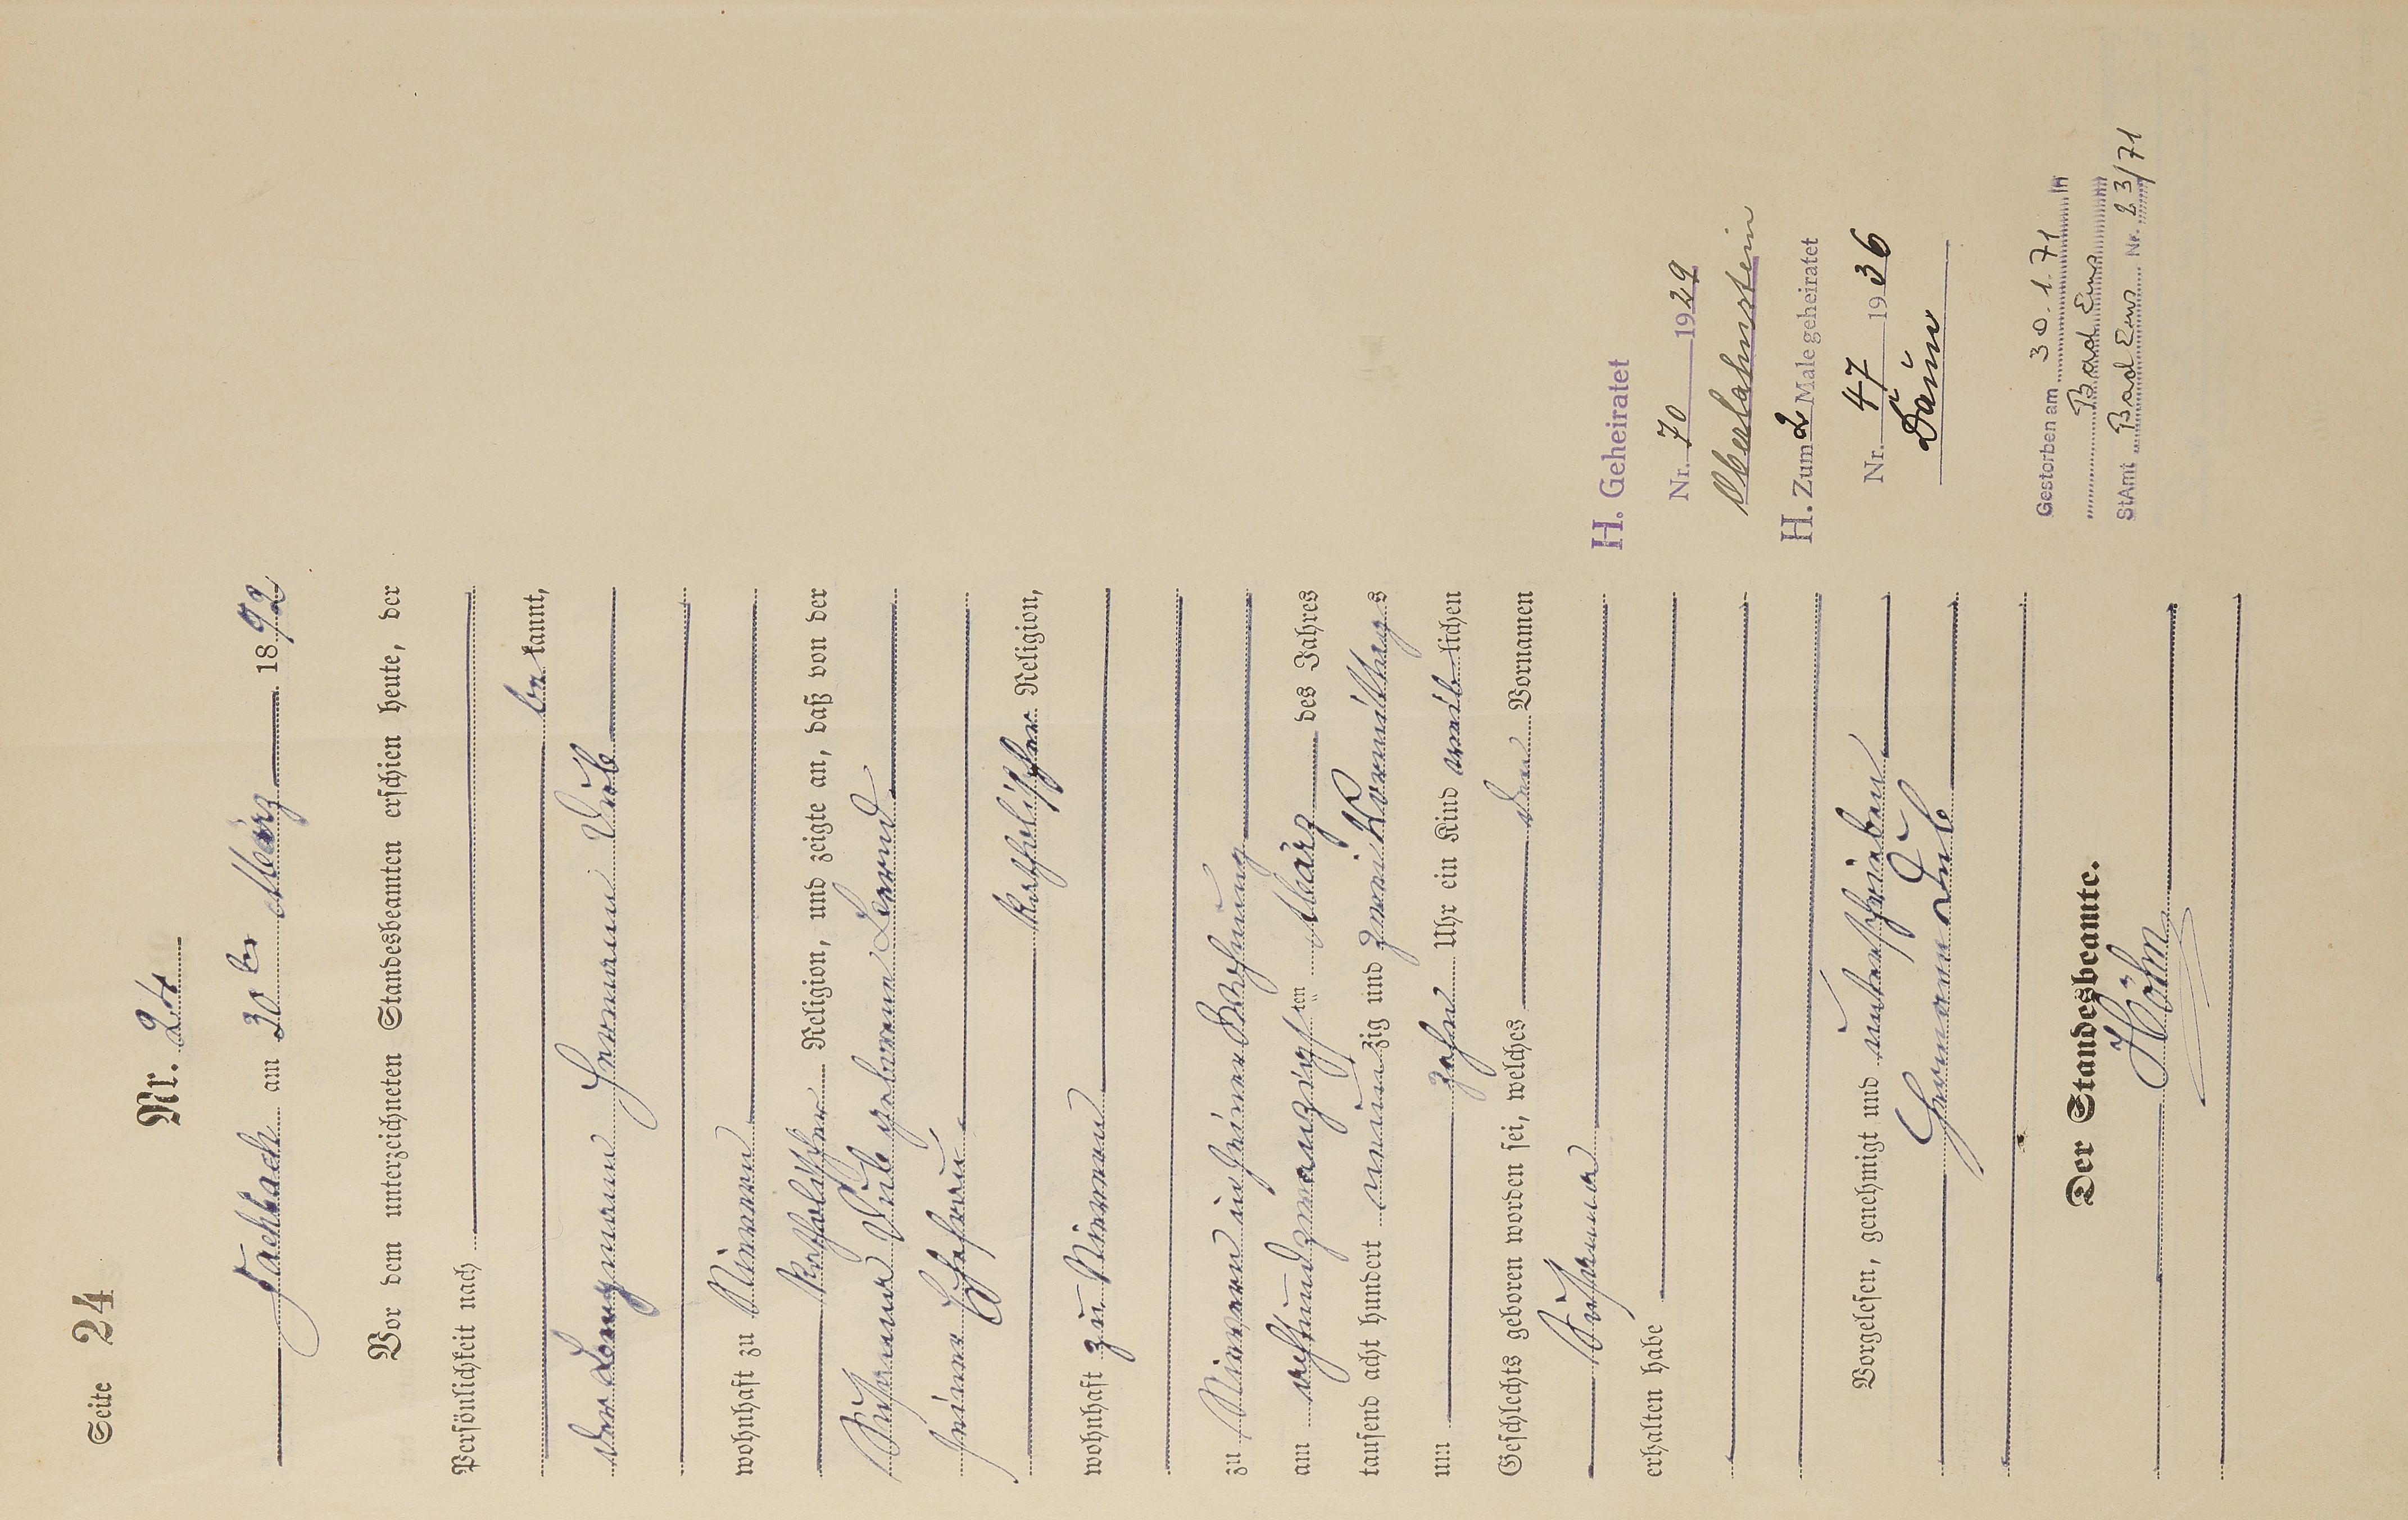 Seite 24
Nr. 24
Fachbach am 30ten März 1892
Vor dem unterzeichneten Standesbeamten erschien heute, der
Persönlichkeit nach
be kannt,
der Bergmann Hermann Dub
wohnhaft zu Nievern
katholischer Religion, und zeigte an, daß von der
Susanna Dub geborene
seiner Ehefrau
katholischer Religion,
wohnhaft zu Nievern
zu Nievern in seiner Wohnung
am achtundzwanzigsten März des Jahres
tausend acht hundert neunzig und zwei Vormittags
um zehn Uhr ein Kind weiblichen
Geschlechts geboren worden sei, welches den Vornamen
Susanna
erhalten habe
Vorgelesen, genehmigt und unterschrieben
Hermann Dub
Der Standesbeamte.
Höhn
H. Geheiratet
Nr. 70 1929
Oberlahnstein
H. Zum 2 Male geheiratet
Nr. 47 1936
Gestorben am 30.1.71 in
Bad Ems
StAmt Bad Ems Nr. 23/71